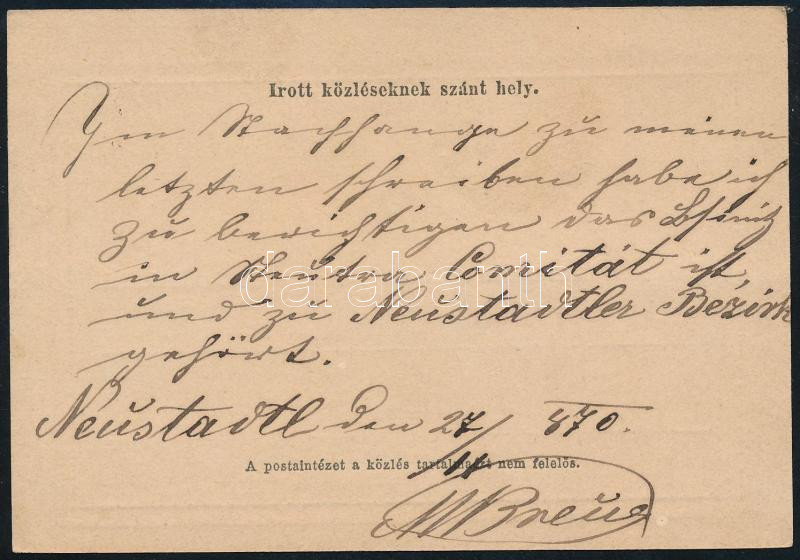 Irott közléseknek szánt hely.
Im Nachhange zu meinen
letzten schreiben habe ich
zu berichtigen das
in Neutra Comitát ist,
und zu Neustadtler Bezirk
gehört.
Neustadtl den 27/11 870.
A postaintézet a közlés tartalmáért nem felelős.
darabanth